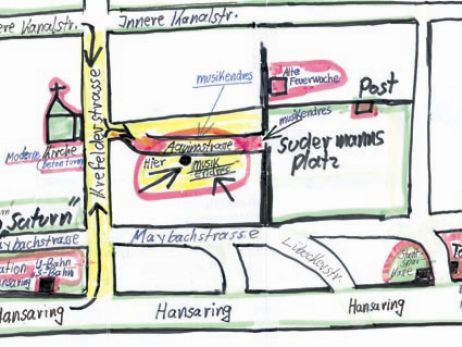 Innere Kanalstr.
Innere Kanalstr.
Krefelderstrasse
musikendres
Alte
Feuerwache
Post
musikendres
Aquinostrasse
Hier
MUSIK
Endres
Moderne Kirche
(betonturm)
Sudermanns
platz
"saturn"
Maybachstrasse
Maybachstrasse
Lübeckerstr.
U-Bahn
S-Bahn
Hansaring
Hansaring
Hansaring
Hansaring